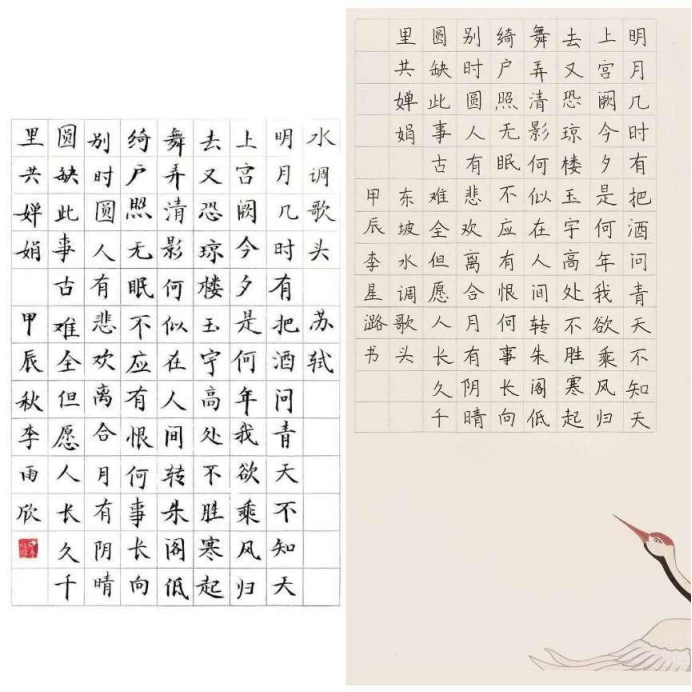 水调歌头 苏轼
明月几时有把酒问青天不知天
上宫阙今夕是何年我欲乘风归
去又恐琼楼玉宇高处不胜寒起
舞弄清影何似在人间转朱阁低
绮户照无眠不应有恨何事长向
别时圆人有悲欢离合月有阴晴
圆缺此事古难全但愿人长久千
里共婵娟 甲辰秋李雨欣
明月几时有把酒问青天不知天
上宫阙今夕是何年我欲乘风归
去又恐琼楼玉宇高处不胜寒起
舞弄清影何似在人间转朱阁低
绮户照无眠不应有恨何事长向
别时圆人有悲欢离合月有阴晴
圆缺此事古难全但愿人长久千
里共婵娟 东坡水调歌头
甲辰李星潞书